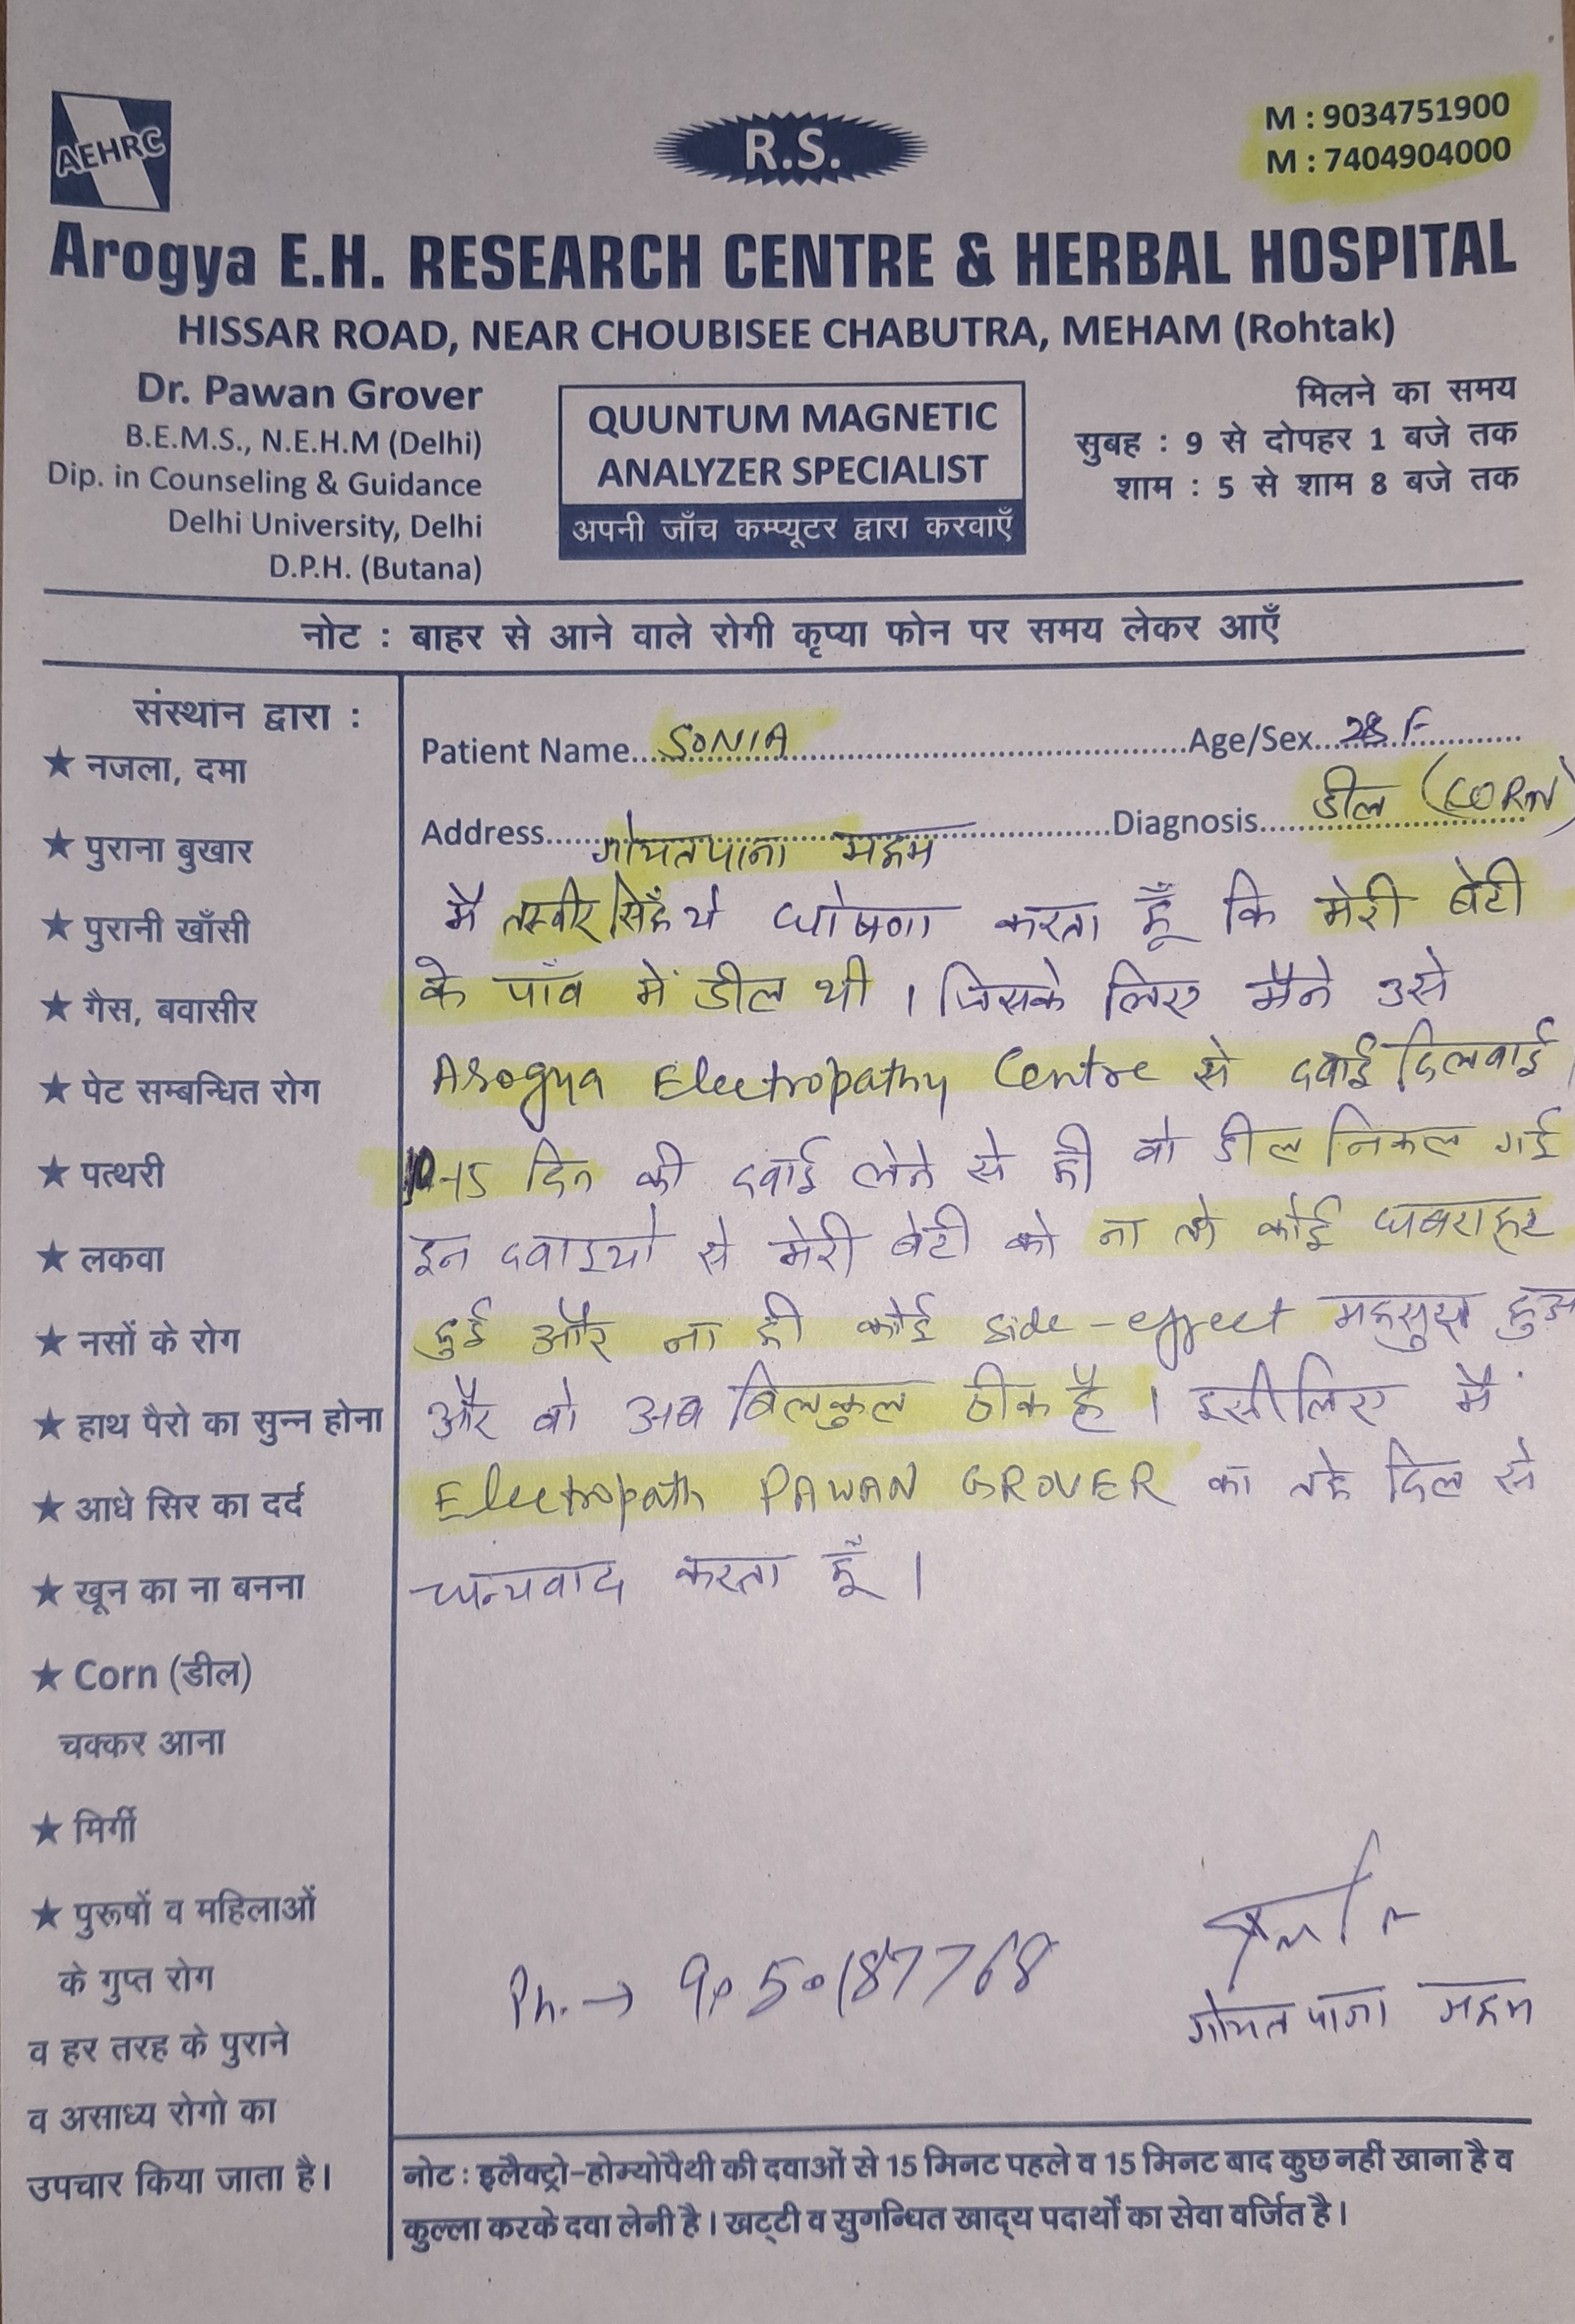 AEHRC
R.S.
M : 9034751900
M : 7404904000
Arogya E.H. RESEARCH CENTRE & HERBAL HOSPITAL
HISSAR ROAD, NEAR CHOUBISEE CHABUTRA, MEHAM (Rohtak)
Dr. Pawan Grover
B.E.M.S., N.E.H.M (Delhi)
Dip. in Counseling & Guidance
Delhi University, Delhi
D.P.H. (Butana)
QUUNTUM MAGNETIC
ANALYZER SPECIALIST
अपनी जाँच कम्प्यूटर द्वारा करवाएँ
मिलने का समय
सुबह : 9 से दोपहर 1 बजे तक
शाम : 5 से शाम 8 बजे तक
नोट : बाहर से आने वाले रोगी कृप्या फोन पर समय लेकर आएँ
संस्थान द्वारा :
★ नजला, दमा
★ पुराना बुखार
★ पुरानी खाँसी
★ गैस, बवासीर
★ पेट सम्बन्धित रोग
★ पत्थरी
★ लकवा
★ नसों के रोग
★ हाथ पैरो का सुन्न होना
★ आधे सिर का दर्द
★ खून का ना बनना
★ Corn (डील)
चक्कर आना
★ मिर्गी
★ पुरूषों व महिलाओं
के गुप्त रोग
व हर तरह के पुराने
व असाध्य रोगो का
उपचार किया जाता है।
Patient Name... SONIA ...Age/Sex... 28 F
Address... ...Diagnosis... डील (CORN)
गोयतपाना महम
मै तस्वीर सिहँ ये घोषणा करता हूँ कि मेरी बेटी
के पाँव में डील थी । जिसके लिए मैने उसे
Arogya Electropathy Centre से दवाई दिलवाई।
10-15 दिन की दवाई लेने से ही वो डील निकल गई
इन दवाइयो से मेरी बेटी को ना तो कोई घबराहट
हुई और ना ही कोई side-effect महसुस हुआ
और वो अब बिलकुल ठीक है । इसीलिए मैं
Electropath PAWAN GROVER का तहे दिल से
धन्यवाद करता हूँ ।
Ph. → 9050187768
गोयतपाना महम
नोट : इलैक्ट्रो-होम्योपैथी की दवाओं से 15 मिनट पहले व 15 मिनट बाद कुछ नहीं खाना है व
कुल्ला करके दवा लेनी है। खट्टी व सुगन्धित खाद्य पदार्थों का सेवा वर्जित है।